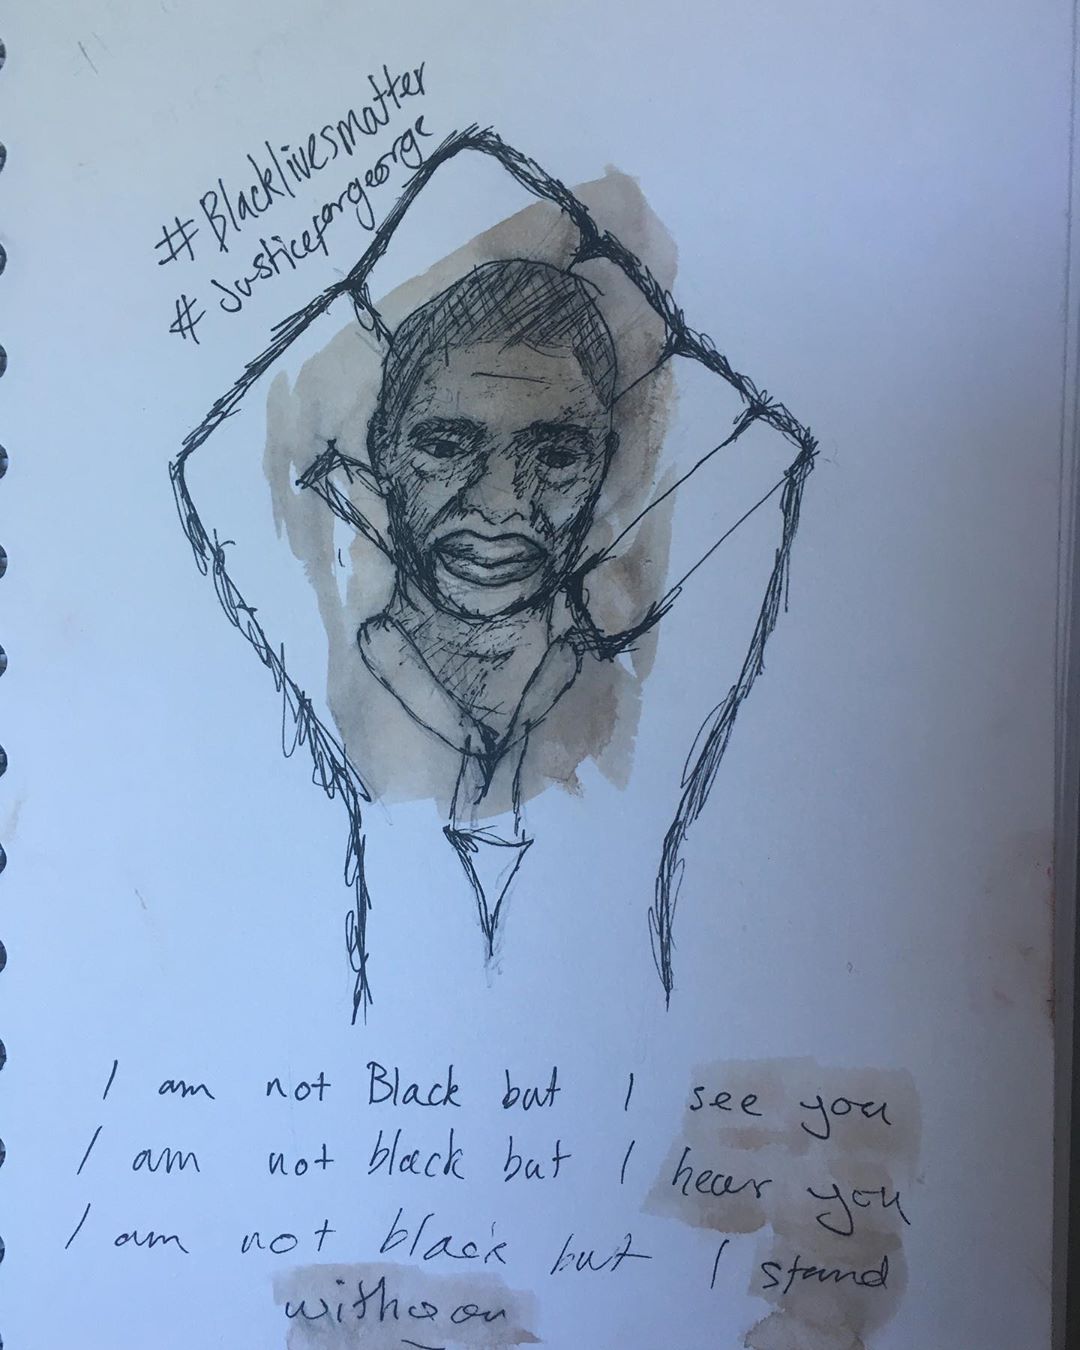 #Blacklivesmatter
# Justiceforgeorge
I am not Black but I see you
I am not black but I hear you
I am not black but I stand
with you